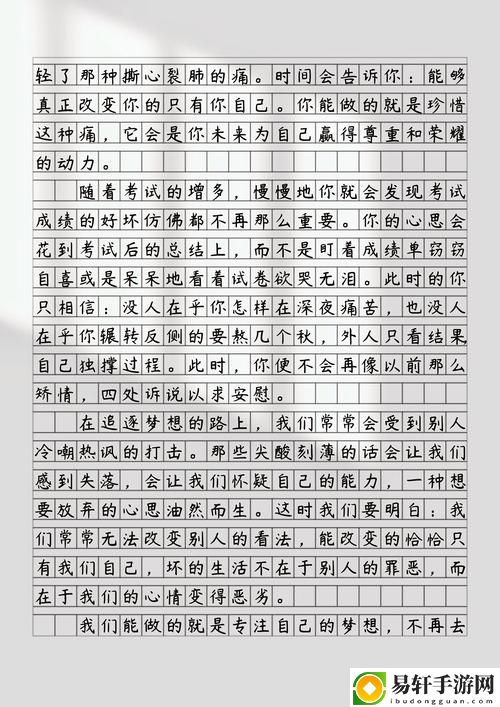 轻了那种撕心裂肺的痛。时间会告诉你：能够
真正改变你的只有你自己。你能做的就是珍惜
这种痛，它会是你未来为自己赢得尊重和荣耀
的动力。
随着考试的增多，慢慢地你就会发现考试
成绩的好坏仿佛都不再那么重要。你的心思会
花到考试后的总结上，而不是盯着成绩单窃窃
自喜或是呆呆地看着试卷欲哭无泪。此时的你
只相信：没人在乎你怎样在深夜痛苦，也没人
在乎你辗转反侧的要熬几个秋，外人只看结果，
自己独撑过程。此时，你便不会再像以前那么
矫情，四处诉说以求安慰。
在追逐梦想的路上，我们常常会受到别人
冷嘲热讽的打击。那些尖酸刻薄的话会让我们
感到失落，会让我们怀疑自己的能力，一种想
要放弃的心思油然而生。这时我们要明白：我
们常常无法改变别人的看法，能改变的恰恰只
有我们自己，坏的生活不在于别人的罪恶，而
在于我们的心情变得恶劣。
我们能做的就是专注自己的梦想，不再去
易轩手游网
ibudongguan.com